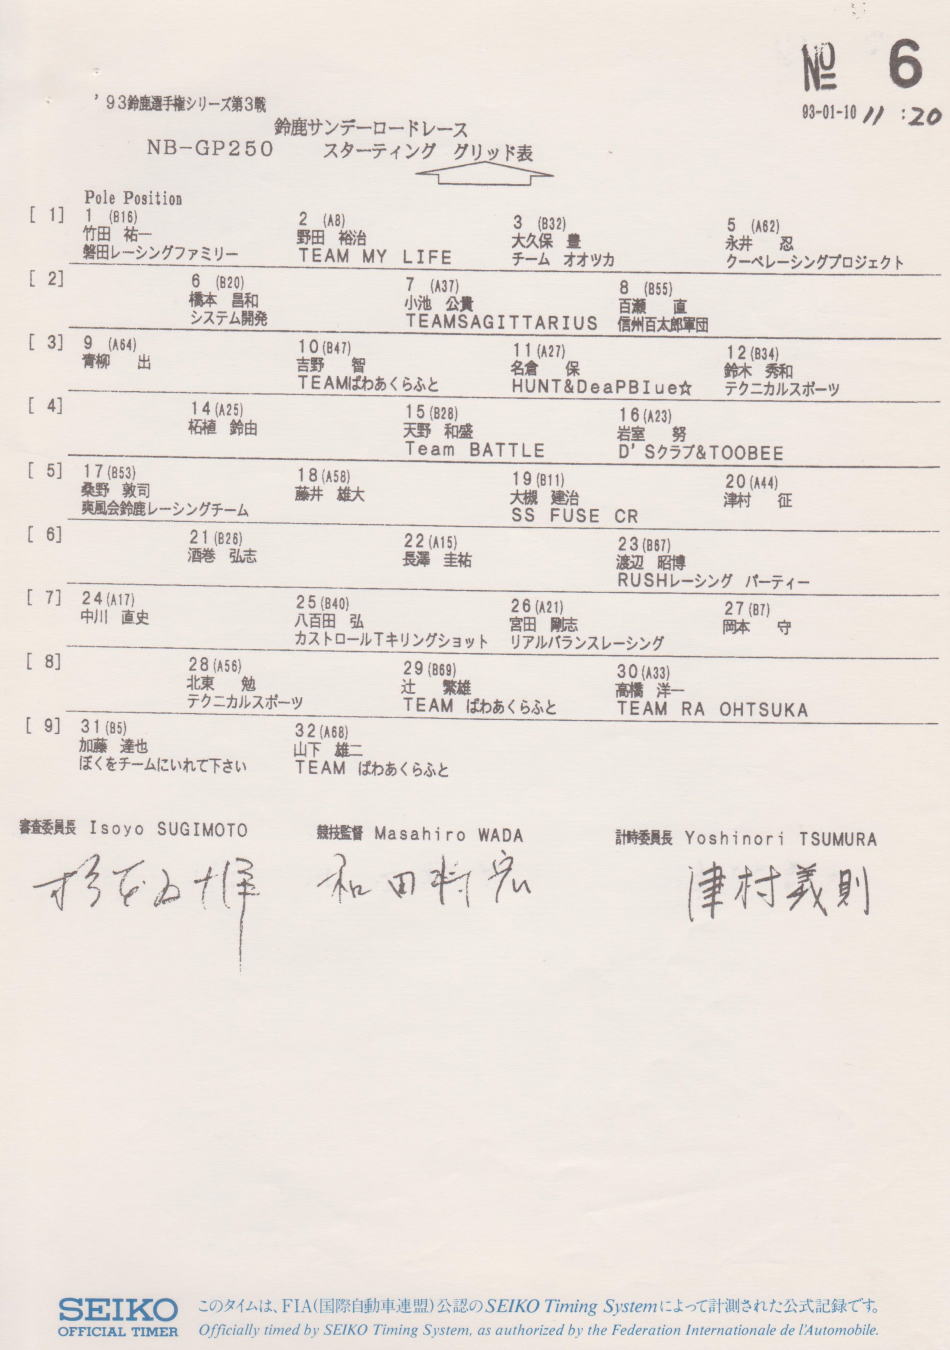 № 6
93-01-10 11:20
'93鈴鹿選手権シリーズ第3戦
鈴鹿サンデーロードレース
NB-GP250 スターティング グリッド表
Pole Position
[ 1] 1 (B16) 2 (A8) 3 (B32) 5 (A62)
竹田 祐一 野田 裕治 大久保 豊 永井 忍
磐田レーシングファミリー TEAM MY LIFE チーム オオツカ クーペレーシングプロジェクト
[ 2] 6 (B20) 7 (A37) 8 (B55)
橋本 昌和 小池 公貴 百瀬 直
システム開発 TEAMSAGITTARIUS 信州百太郎軍団
[ 3] 9 (A64) 10(B47) 11(A27) 12(B34)
青柳 出 吉野 智 名倉 保 鈴木 秀和
TEAMぱわあくらふと HUNT&DeaPBIue☆ テクニカルスポーツ
[ 4] 14(A25) 15(B28) 16(A23)
柘植 鈴由 天野 和盛 岩室 努
Team BATTLE D'Sクラブ&TOOBEE
[ 5] 17(B53) 18(A58) 19(B11) 20(A44)
桑野 敦司 藤井 雄大 大槻 建治 津村 征
爽風会鈴鹿レーシングチーム SS FUSE CR
[ 6] 21(B26) 22(A15) 23(B67)
酒巻 弘志 長澤 圭祐 渡辺 昭博
RUSHレーシング パーティー
[ 7] 24(A17) 25(B40) 26(A21) 27(B7)
中川 直史 八百田 弘 宮田 剛志 岡本 守
カストロールTキリングショット リアルバランスレーシング
[ 8] 28(A56) 29(B69) 30(A33)
北東 勉 辻 繁雄 高橋 洋一
テクニカルスポーツ TEAM ぱわあくらふと TEAM RA OHTSUKA
[ 9] 31(B5) 32(A68)
加藤 達也 山下 雄二
ぼくをチームにいれて下さい TEAM ぱわあくらふと
審査委員長 Isoyo SUGIMOTO 競技監督 Masahiro WADA 計時委員長 Yoshinori TSUMURA
和田将宏 津村義則
SEIKO このタイムは、FIA(国際自動車連盟)公認のSEIKO Timing Systemによって計測された公式記録です。
OFFICIAL TIMER Officially timed by SEIKO Timing System, as authorized by the Federation Internationale de l'Automobile.